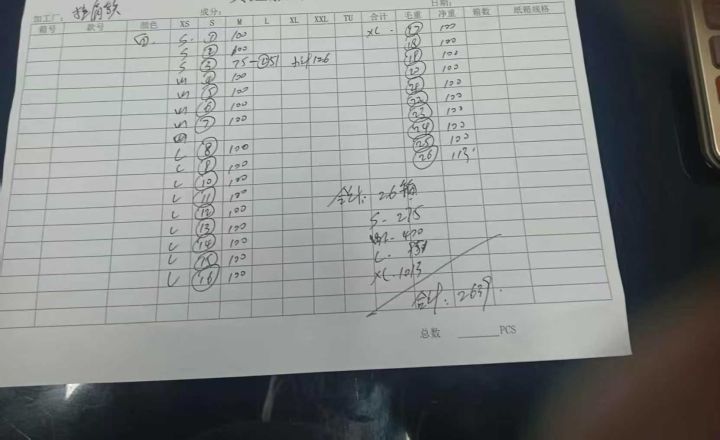 加工厂: 成分: 日期:
箱号 款号 颜色 XS S M L XL XXL TU 合计 毛重 净重 箱数 纸箱规格
白. S. ① 100 XL - ⑰ 100
S ② 100 ⑱ 100
S ③ 75 ⑲ 100
m ④ 100 ⑳ 100
m ⑤ 100 ㉑ 100
m ⑥ 100 ㉒ 100
m ⑦ 100 ㉓ 100
m ㉔ 100
L ⑧ 100 ㉕ 100
L ⑨ 100 ㉖ 113
L ⑩ 100
L ⑪ 100 合计: 26箱
L ⑫ 100 S - 275
L ⑬ 100 M - 400
L ⑭ 100 L -
L ⑮ 100 XL. 1013
L ⑯ 100
合计:
总数 PCS